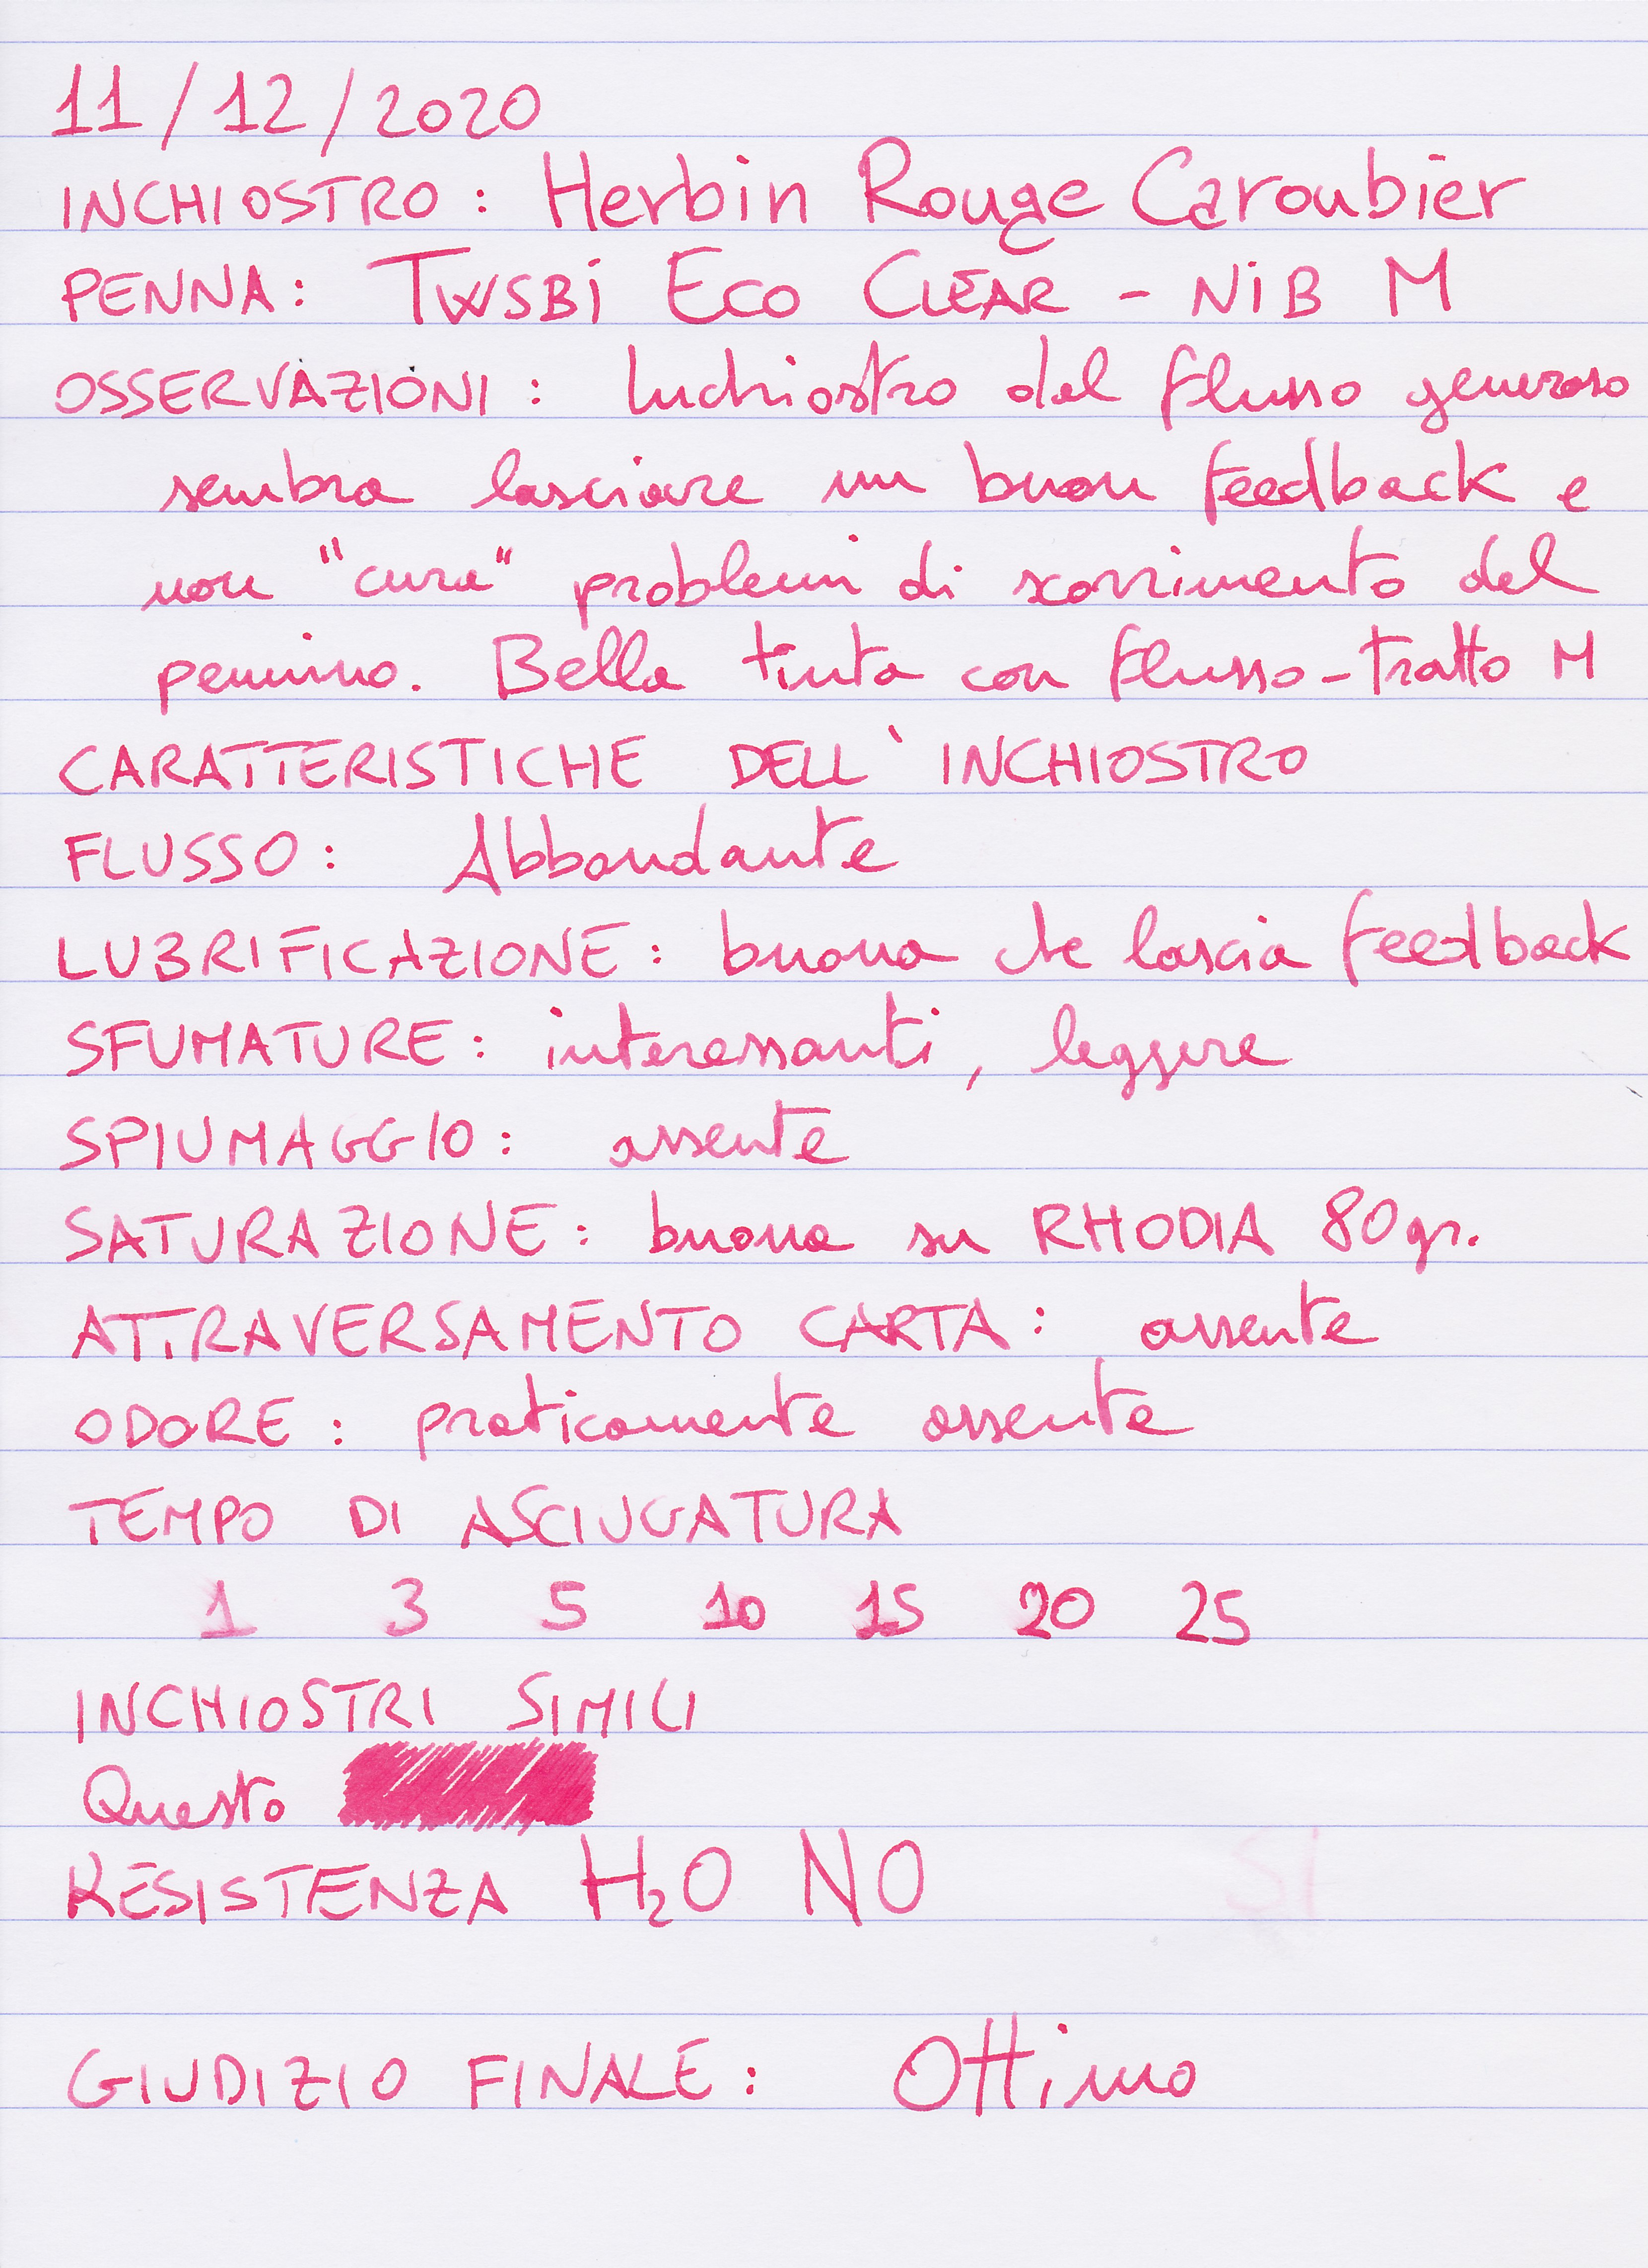 11/12/2020
INCHIOSTRO: Herbin Rouge Caroubier
PENNA: TWSBi Eco CLEAR - NiB M
OSSERVAZIONI: Inchiostro dal flusso generoso
sembra lasciare un buon feedback e
non "cura" problemi di scorrimento del
pennino. Bella tinta con flusso-tratto M
CARATTERISTICHE DELL'INCHIOSTRO
FLUSSO: Abbondante
LUBRIFICAZIONE: buona che lascia feedback
SFUMATURE: interessanti, leggere
SPIUMAGGIO: assente
SATURAZIONE: buona su RHODIA 80gr.
ATTRAVERSAMENTO CARTA: assente
ODORE: praticamente assente
TEMPO DI ASCIUGATURA
1 3 5 10 15 20 25
INCHIOSTRI SIMILI
Questo
RESISTENZA H₂O NO SI
GIUDIZIO FINALE: Ottimo